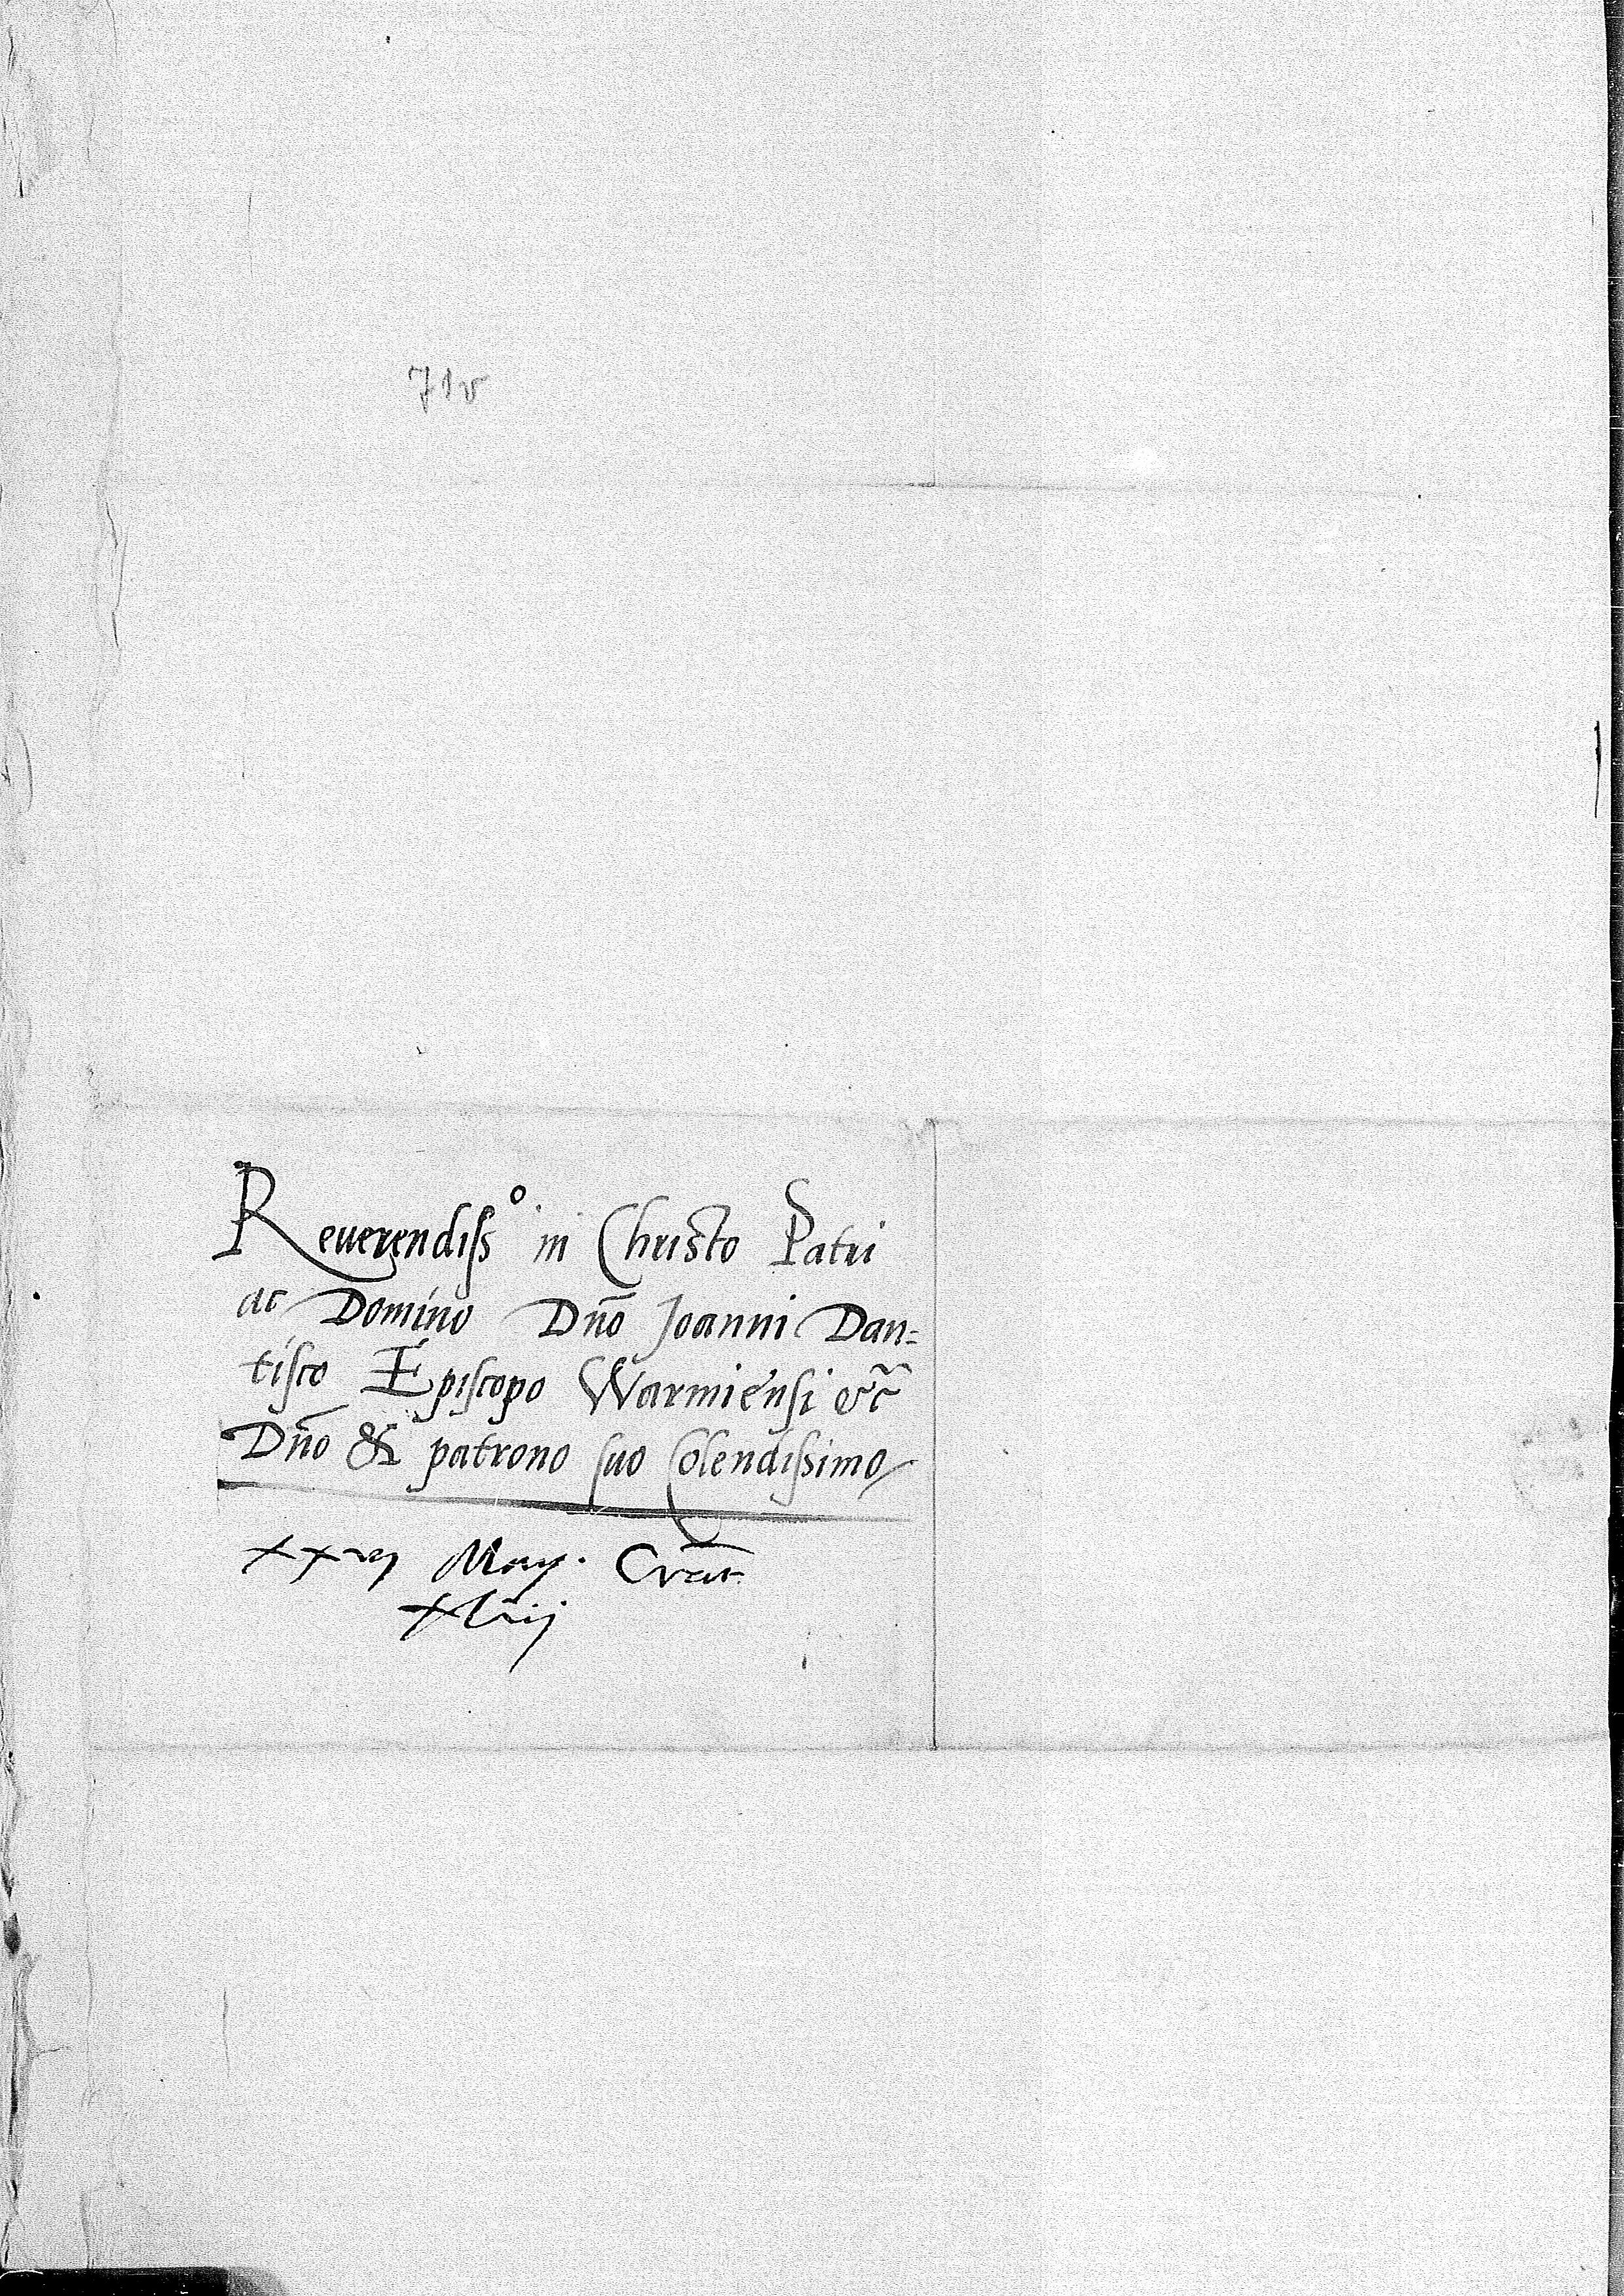 71v
Reverendiss° in Christo Patri
ac Domino Dño Joanni Dan=
tisco Episcopo Warmiensi &c̃
Dño & patrono suo Colendissimo
xxvj Maij.